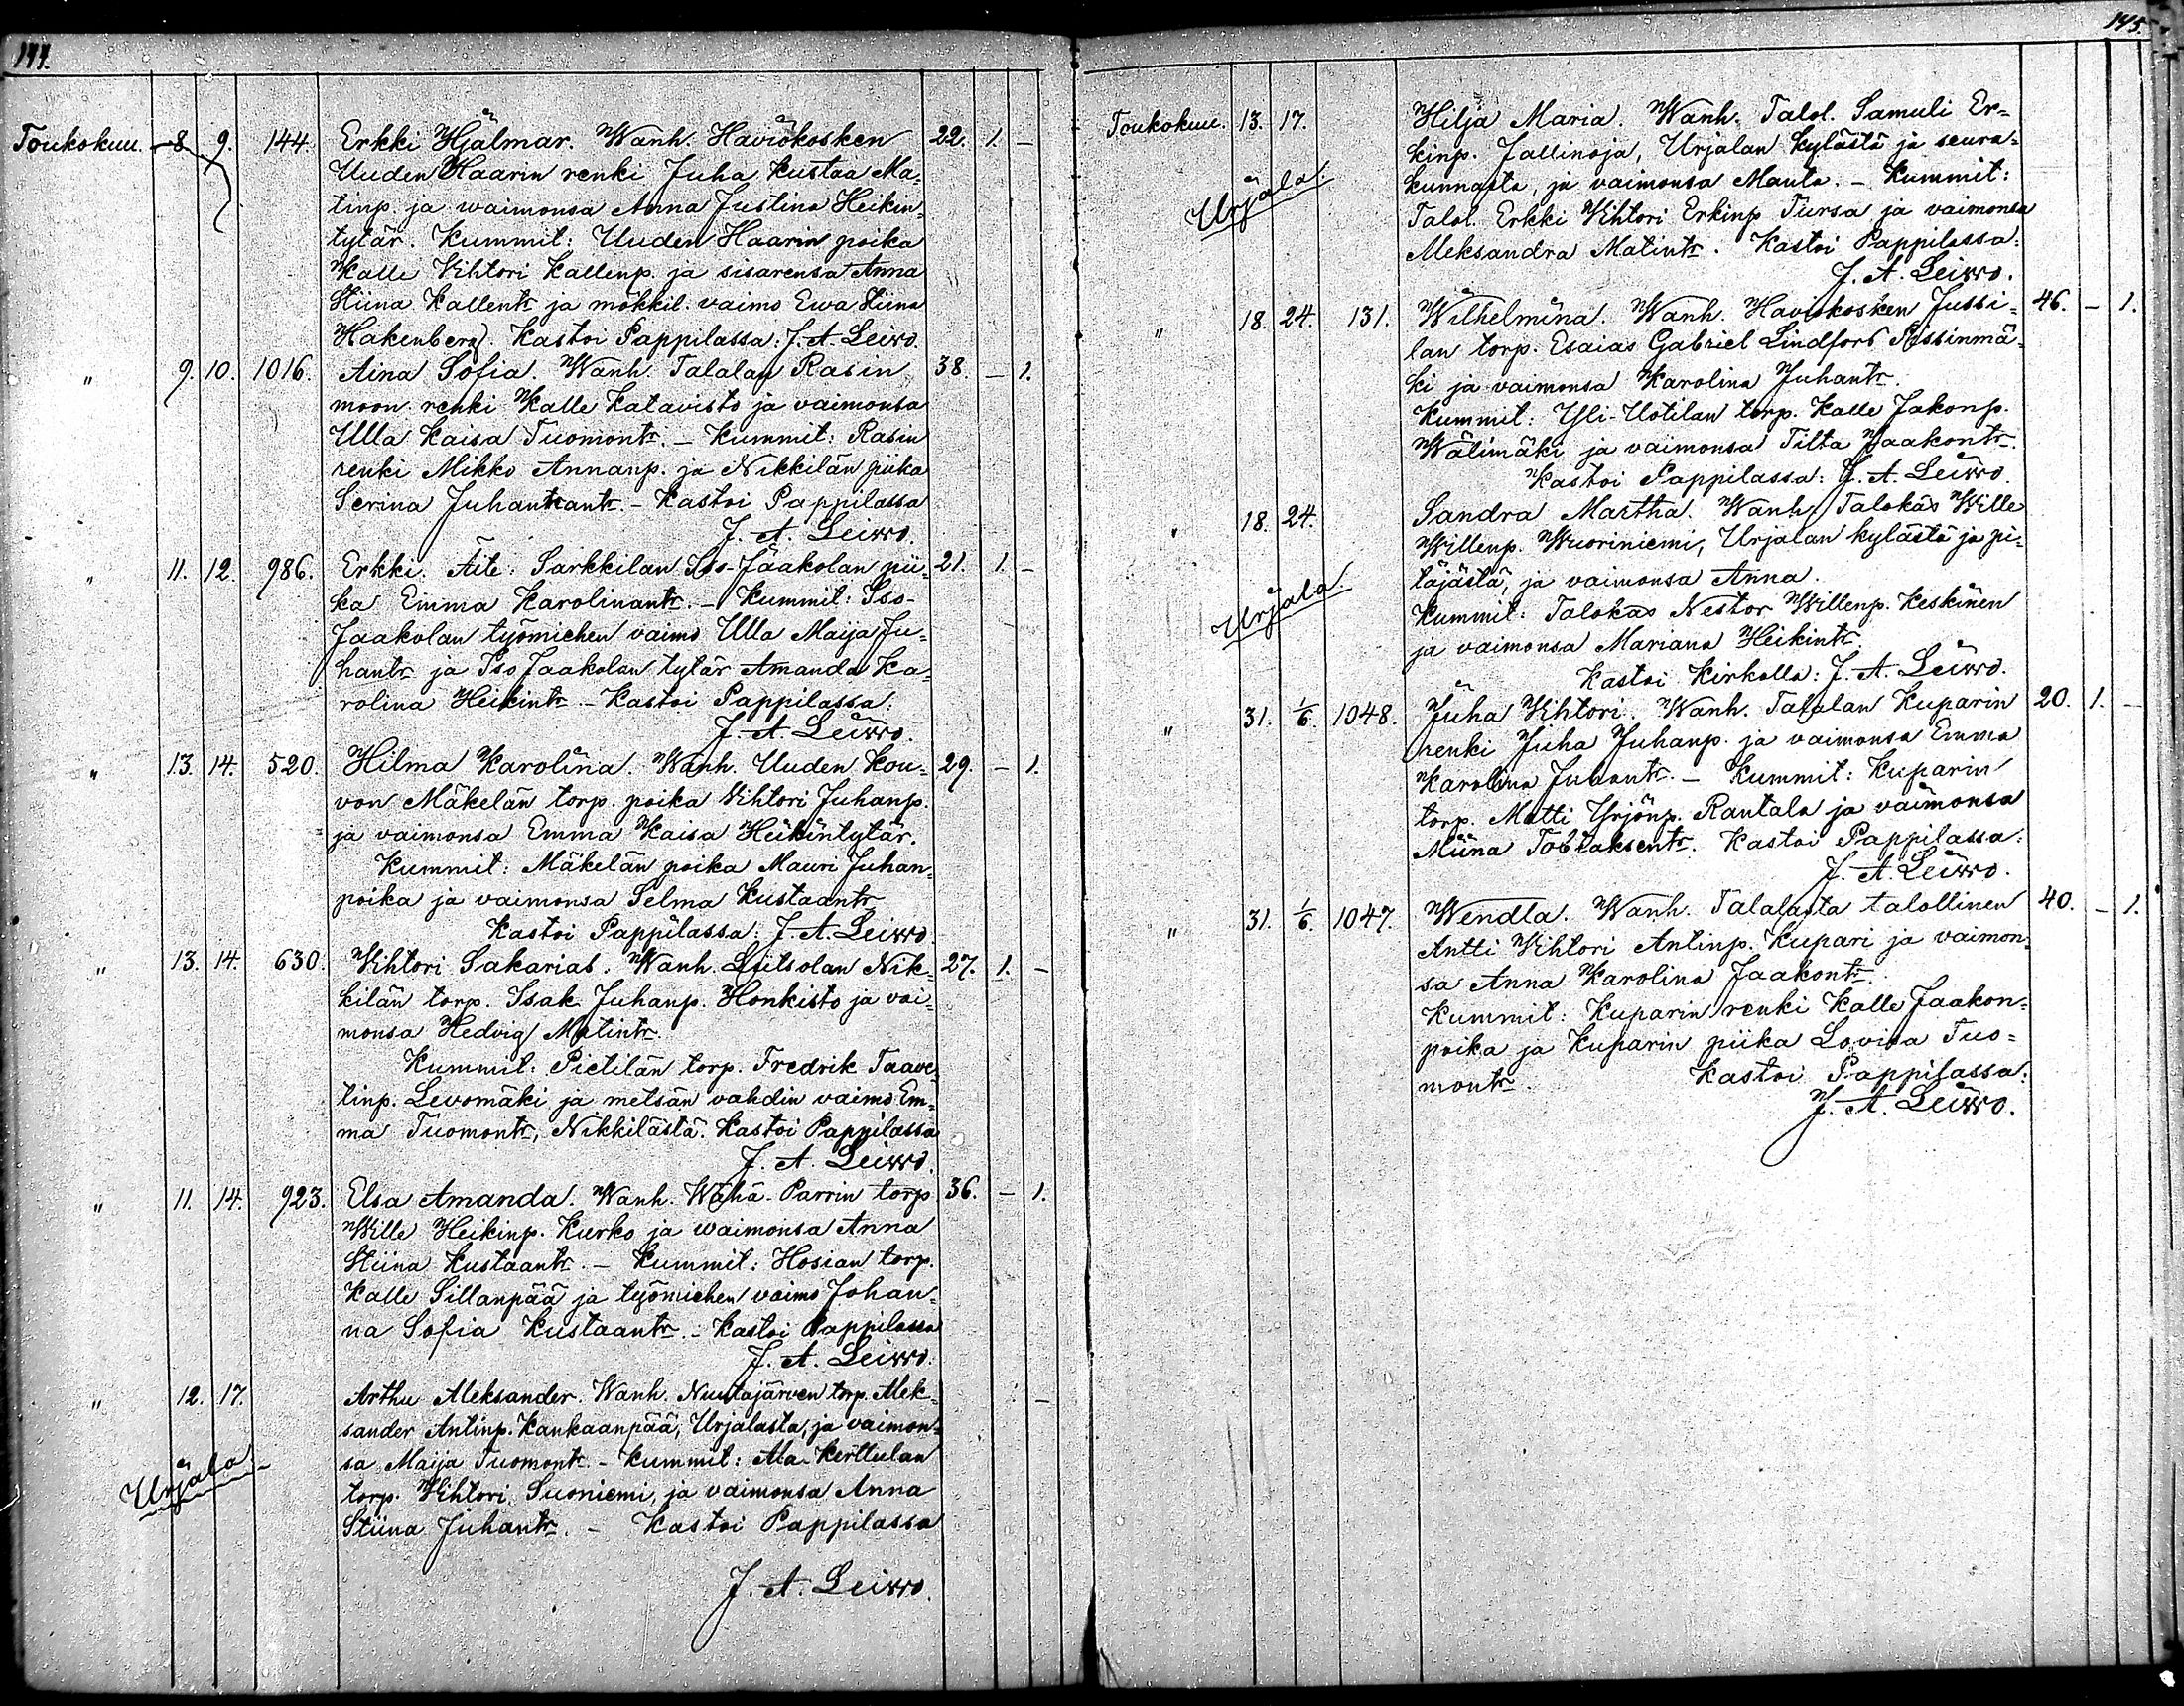 144.
Toukokuu. 8 9. 144. Erkki Hjalmar. Wanh. Haviokosken 22. 1. -
Uuden Haarin renki Juha Kustaa Ma-
tinp. ja waimonsa Anna Justina Heikin-
tytär. Kummit: Uuden Haarin poika
Kalle Vihtori Kallenp. ja sisarensa Anna
Stiina Kallentr ja mökkil. vaimo Ewa Stiina
Hakenberg. Kastoi Pappilassa: J. A. Leivo.
" 9. 10. 1016. Aina Sofia. Wanh. Talalan Rasin 38. - 1.
moon renki Kalle Katavisto ja vaimonsa
Ulla Kaisa Tuomontr. - Kummit: Rasin
renki Mikko Annanp. ja Nikkilän piika
Serina Juhantr. - Kastoi Pappilassa
J. A. Leivo.
" 11. 12. 986. Erkki. Äite: Sarkkilan Iso-Jaakolan pii- 21. 1. -
ka Emma Karolinantr. - Kummit: Iso-
Jaakolan työmiehen vaimo Ulla Maija Ju-
hantr ja Iso Jaakolan tytär Amanda Ka-
rolina Heikintr. - Kastoi Pappilassa:
J. A. Leivo.
" 13. 14. 520. Hilma Karolina. Wanh. Uuden Kou- 29. - 1.
von Mäkelän torp. poika Vihtori Juhanp.
ja vaimonsa Emma Kaisa Heikintytär.
Kummit: Mäkelän poika Mauri Juhan-
poika ja vaimonsa Selma Kustaantr
Kastoi Pappilassa: J. A. Leivo.
" 13. 14. 630. Vihtori Sakarias. Wanh. Liitsolan Nik- 27. 1. -
kilän torp. Isak Juhanp. Honkisto ja vai-
monsa Hedvig Matintr.
Kummit: Pietilän torp. Fredrik Taave-
tinp. Levomäki ja metsän vahdin vaimo Em-
ma Tuomontr, Nikkilästä. Kastoi Pappilassa
J. A. Leivo.
" 11. 14. 923. Elsa Amanda. Wanh. Wähä-Parrin torp 36. - 1.
Wille Heikinp. Kurko ja waimonsa Anna
Stiina Kustaantr. - Kummit: Hosian torp.
Kalle Sillanpää ja työmiehen vaimo Johan-
na Sofia Kustaantr. - Kastoi Pappilassa
J. A. Leivo.
" 12. 17. Arthu Aleksander. Wanh. Nuutajärven torp. Alek- -
sander Antinp. Kankaanpää, Urjalasta, ja vaimon-
sa Maija Tuomontr. - Kummit: Ala-Kerttulan
Urjala
torp. Vihtori Suoniemi, ja vaimonsa Anna
Stiina Juhantr. - Kastoi Pappilassa
J. A. Leivo.
145.
Toukokuu. 13. 17. Hilja Maria. Wanh. Talol. Samuli Er-
kinp. Jallinoja, Urjalan kylästä ja seura-
Urjala.
kunnasta, ja vaimonsa Manta. - Kummit:
Talol. Erkki Vihtori Erkinp Tursa ja vaimonsa
Aleksandra Matintr. Kastoi Pappilassa:
J. A. Leivo.
" 18. 24. 131. Wilhelmina. Wanh. Haviokosken Jussi- 46. - 1.
lan torp. Esaias Gabriel Lindfors Pissinmä-
ki ja vaimonsa Karolina Juhantr.
Kummit: Yli-Uotilan torp. Kalle Jakonp.
Wälimäki ja vaimonsa Tilta Jaakontr.
Kastoi Pappilassa: J. A. Leivo.
" 18. 24. Sandra Martha. Wanh. Talokas Wille
Willenp. Wuoriniemi, Urjalan kylästä ja pi-
täjästä, ja vaimonsa Anna.
Urjala
Kummit: Talokas Nestor Willenp. Keskinen
ja vaimonsa Mariana Heikintr.
Kastoi Kirkolla: J. A. Leivo.
" 31. 1/6. 1048. Juha Vihtori. Wanh. Talalan Kuparin 20. 1. -
renki Juha Juhanp. ja vaimonsa Emma
Karolina Juhantr. - Kummit: Kuparin
torp. Matti Yrjönp. Rantala ja vaimonsa
Miina Tobiaksentr. Kastoi Pappilassa:
J. A. Leivo.
" 31. 1/6. 1047. Wendla. Wanh. Talalasta talollinen 40. - 1.
Antti Vihtori Antinp. Kupari ja vaimon-
sa Anna Karolina Jaakontr.
Kummit: Kuparin renki Kalle Jaakon-
poika ja Kuparin piika Lovisa Tuo-
montr. Kastoi Pappilassa:
J. A. Leivo.